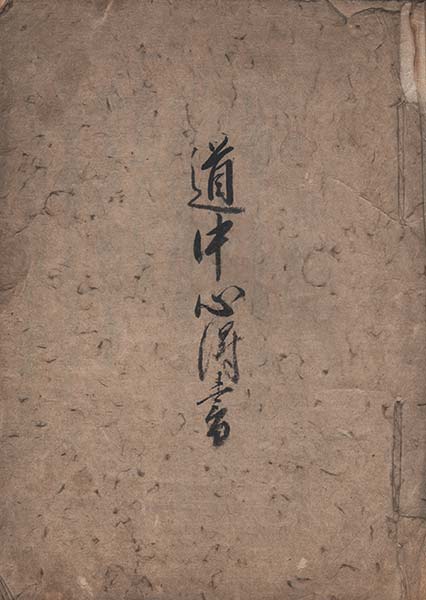 道中心得書